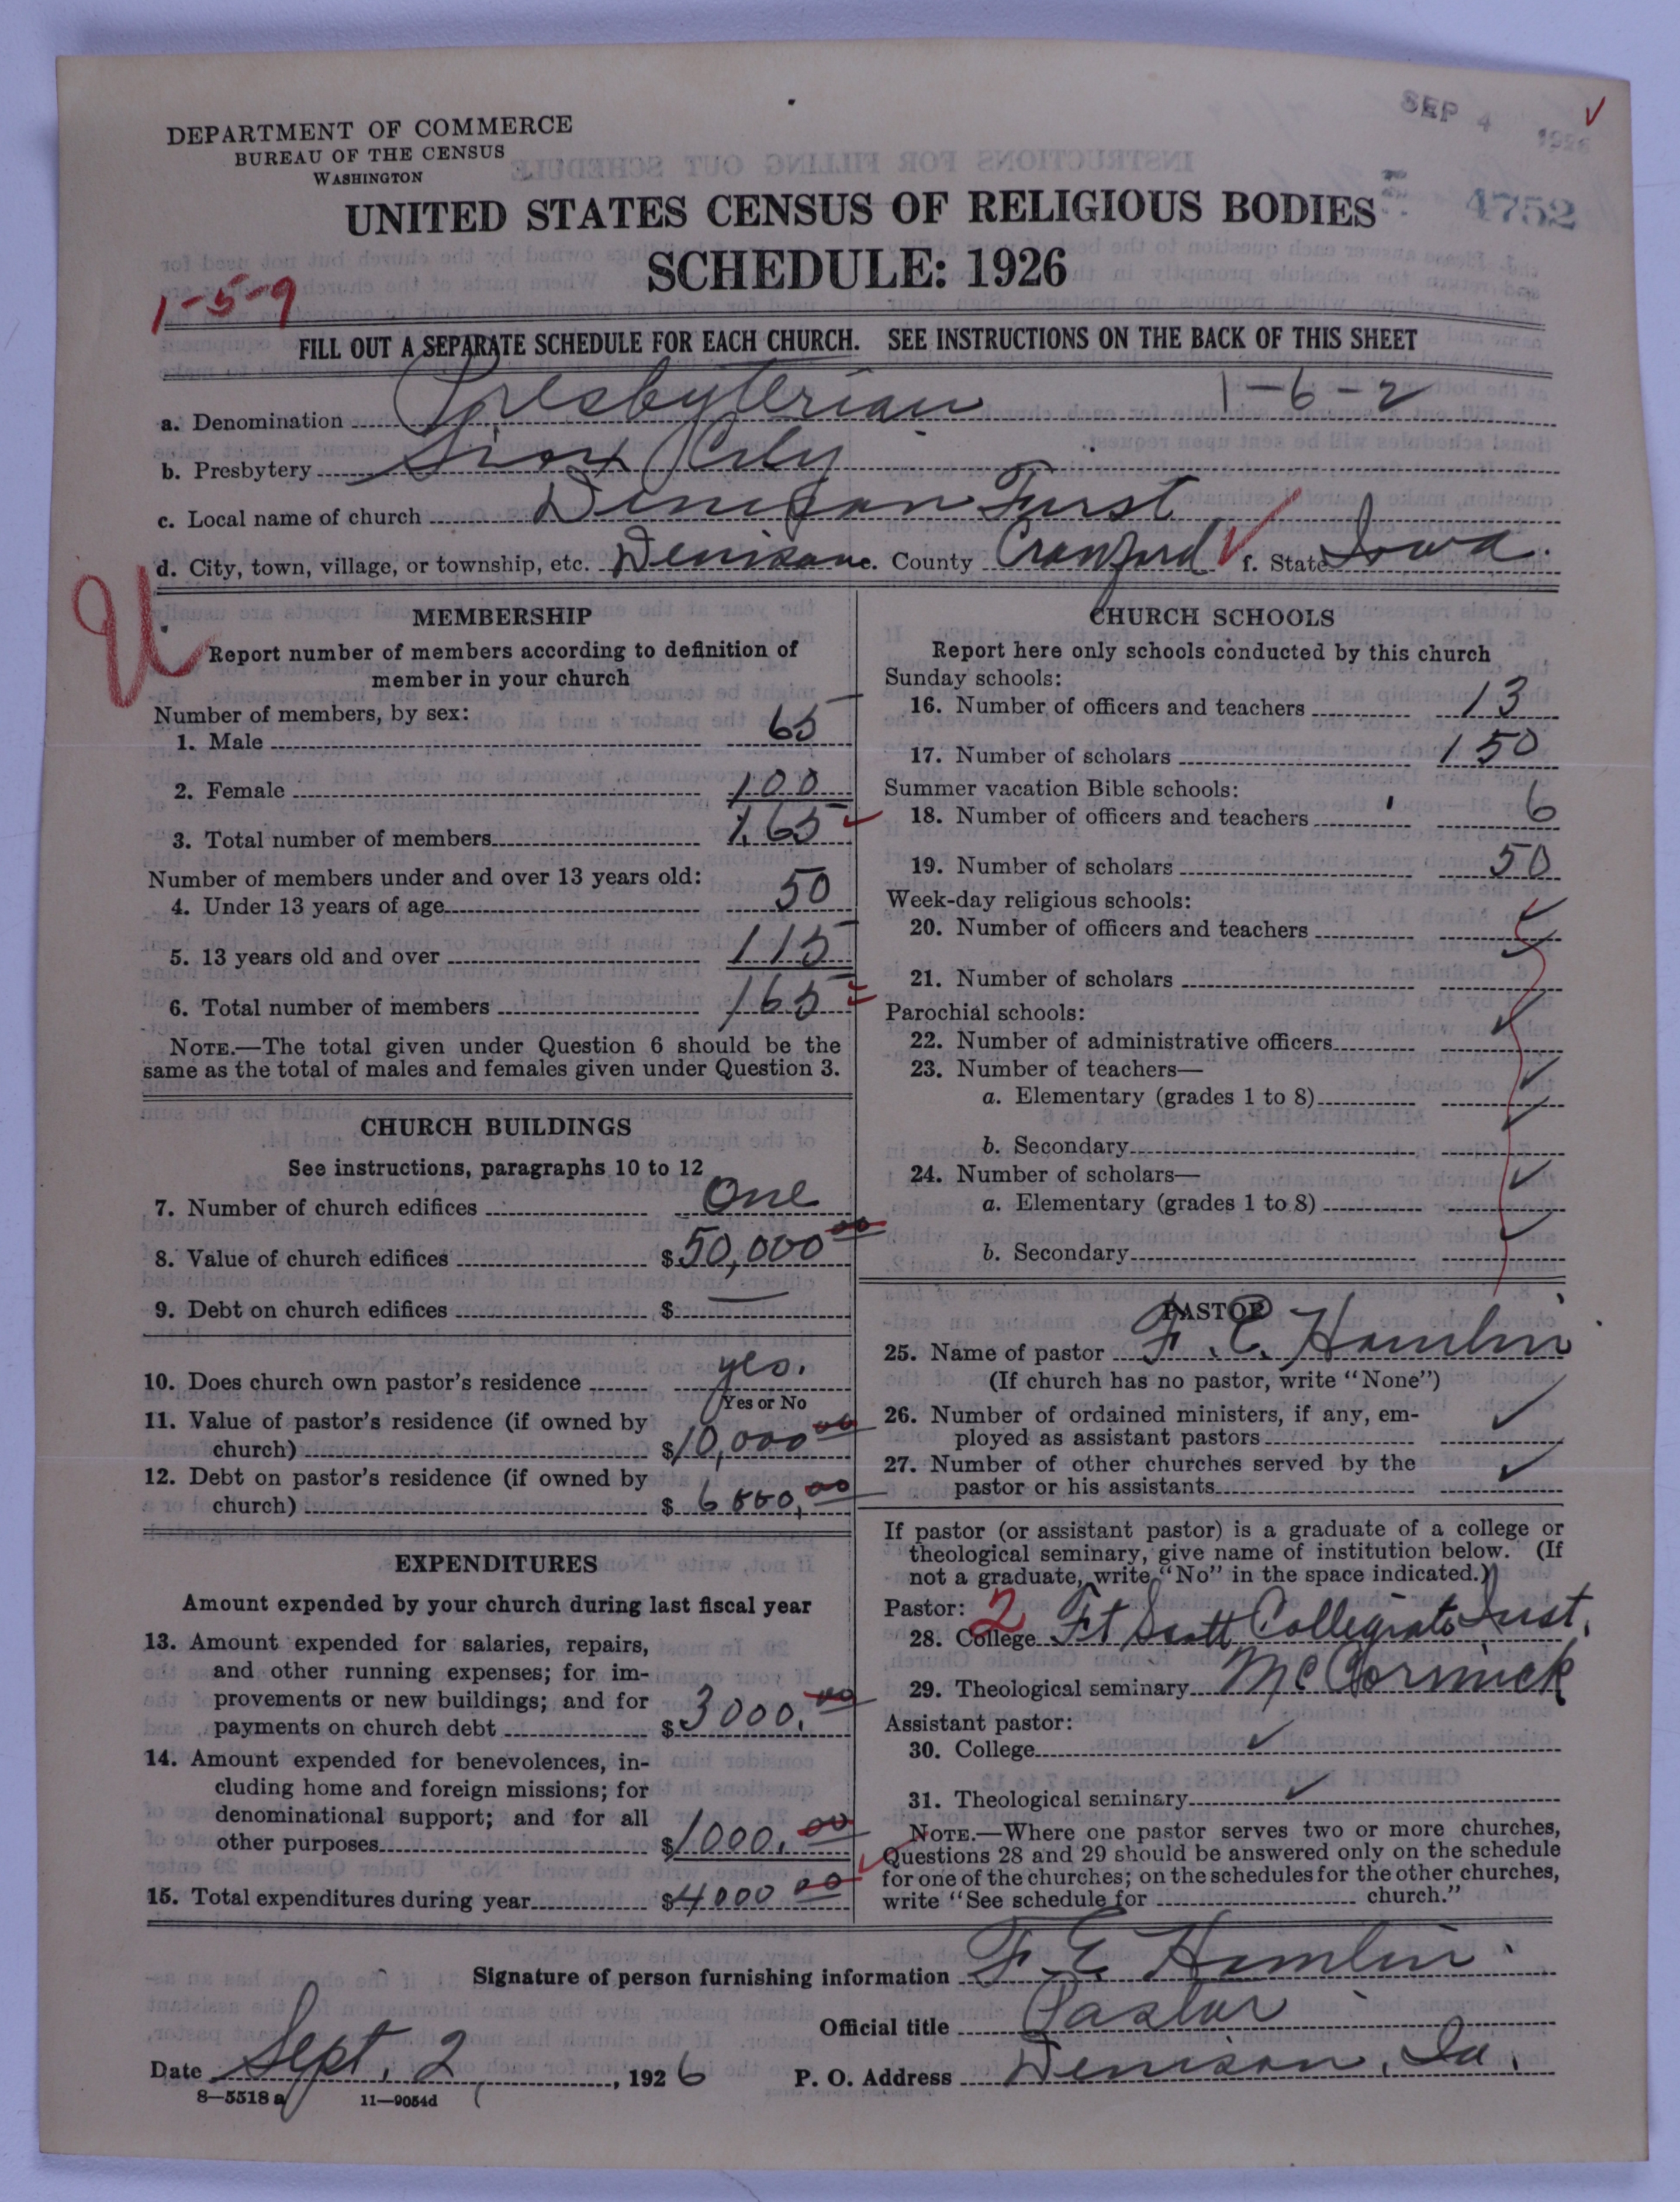 DEPARTMENT OF COMMERCE
BUREAU OF THE CENSUS
WASHINGTON
SEP 4 1926
4752
UNITED STATES CENSUS OF RELIGIOUS BODIES
SCHEDULE: 1926
1-5-9
FILL OUT A SEPARATE SCHEDULE FOR EACH CHURCH. SEE INSTRUCTIONS ON THE BACK OF THIS SHEET
a. Denomination Presbyterian 1-6-2
b. Presbytery Sioux City
c. Local name of church Denison First
d. City, town, village, or township, etc. Denison e. County Crawford f. State Iowa.
MEMBERSHIP
Report number of members according to definition of
member in your church
Number of members, by sex:
1. Male 65
2. Female 100
3. Total number of members 165
Number of members under and over 13 years old:
4. Under 13 years of age 50
5. 13 years old and over 115
6. Total number of members 165
NOTE.—The total given under Question 6 should be the
same as the total of males and females given under Question 3.
CHURCH BUILDINGS
See instructions, paragraphs 10 to 12
7. Number of church edifices One
8. Value of church edifices $50,000 00
9. Debt on church edifices $ —
10. Does church own pastor's residence yes.
Yes or No
11. Value of pastor's residence (if owned by
church) $10,000 00
12. Debt on pastor's residence (if owned by
church) $ 6000, 00
EXPENDITURES
Amount expended by your church during last fiscal year
13. Amount expended for salaries, repairs,
and other running expenses; for im-
provements or new buildings; and for
payments on church debt $3000. 00
14. Amount expended for benevolences, in-
cluding home and foreign missions; for
denominational support; and for all
other purposes $1000. 00
15. Total expenditures during year $4000 00
CHURCH SCHOOLS
Report here only schools conducted by this church
Sunday schools:
16. Number of officers and teachers 13
17. Number of scholars 150
Summer vacation Bible schools:
18. Number of officers and teachers 6
19. Number of scholars 50
Week-day religious schools:
20. Number of officers and teachers
21. Number of scholars
Parochial schools:
22. Number of administrative officers
23. Number of teachers—
a. Elementary (grades 1 to 8)
b. Secondary
24. Number of scholars—
a. Elementary (grades 1 to 8)
b. Secondary
PASTOR
25. Name of pastor F. E. Hamlin
(If church has no pastor, write "None")
26. Number of ordained ministers, if any, em-
ployed as assistant pastors
27. Number of other churches served by the
pastor or his assistants
If pastor (or assistant pastor) is a graduate of a college or
theological seminary, give name of institution below. (If
not a graduate, write "No" in the space indicated.)
Pastor: 2
28. College Ft Scott Collegiate Inst.
29. Theological seminary McCormick
Assistant pastor:
30. College
31. Theological seminary
NOTE.—Where one pastor serves two or more churches,
Questions 28 and 29 should be answered only on the schedule
for one of the churches; on the schedules for the other churches,
write "See schedule for church."
Signature of person furnishing information F. E. Hamlin
Official title Pastor
Date Sept. 2, 1926 P. O. Address Denison, Ia.
8—5518 a 11—9054d